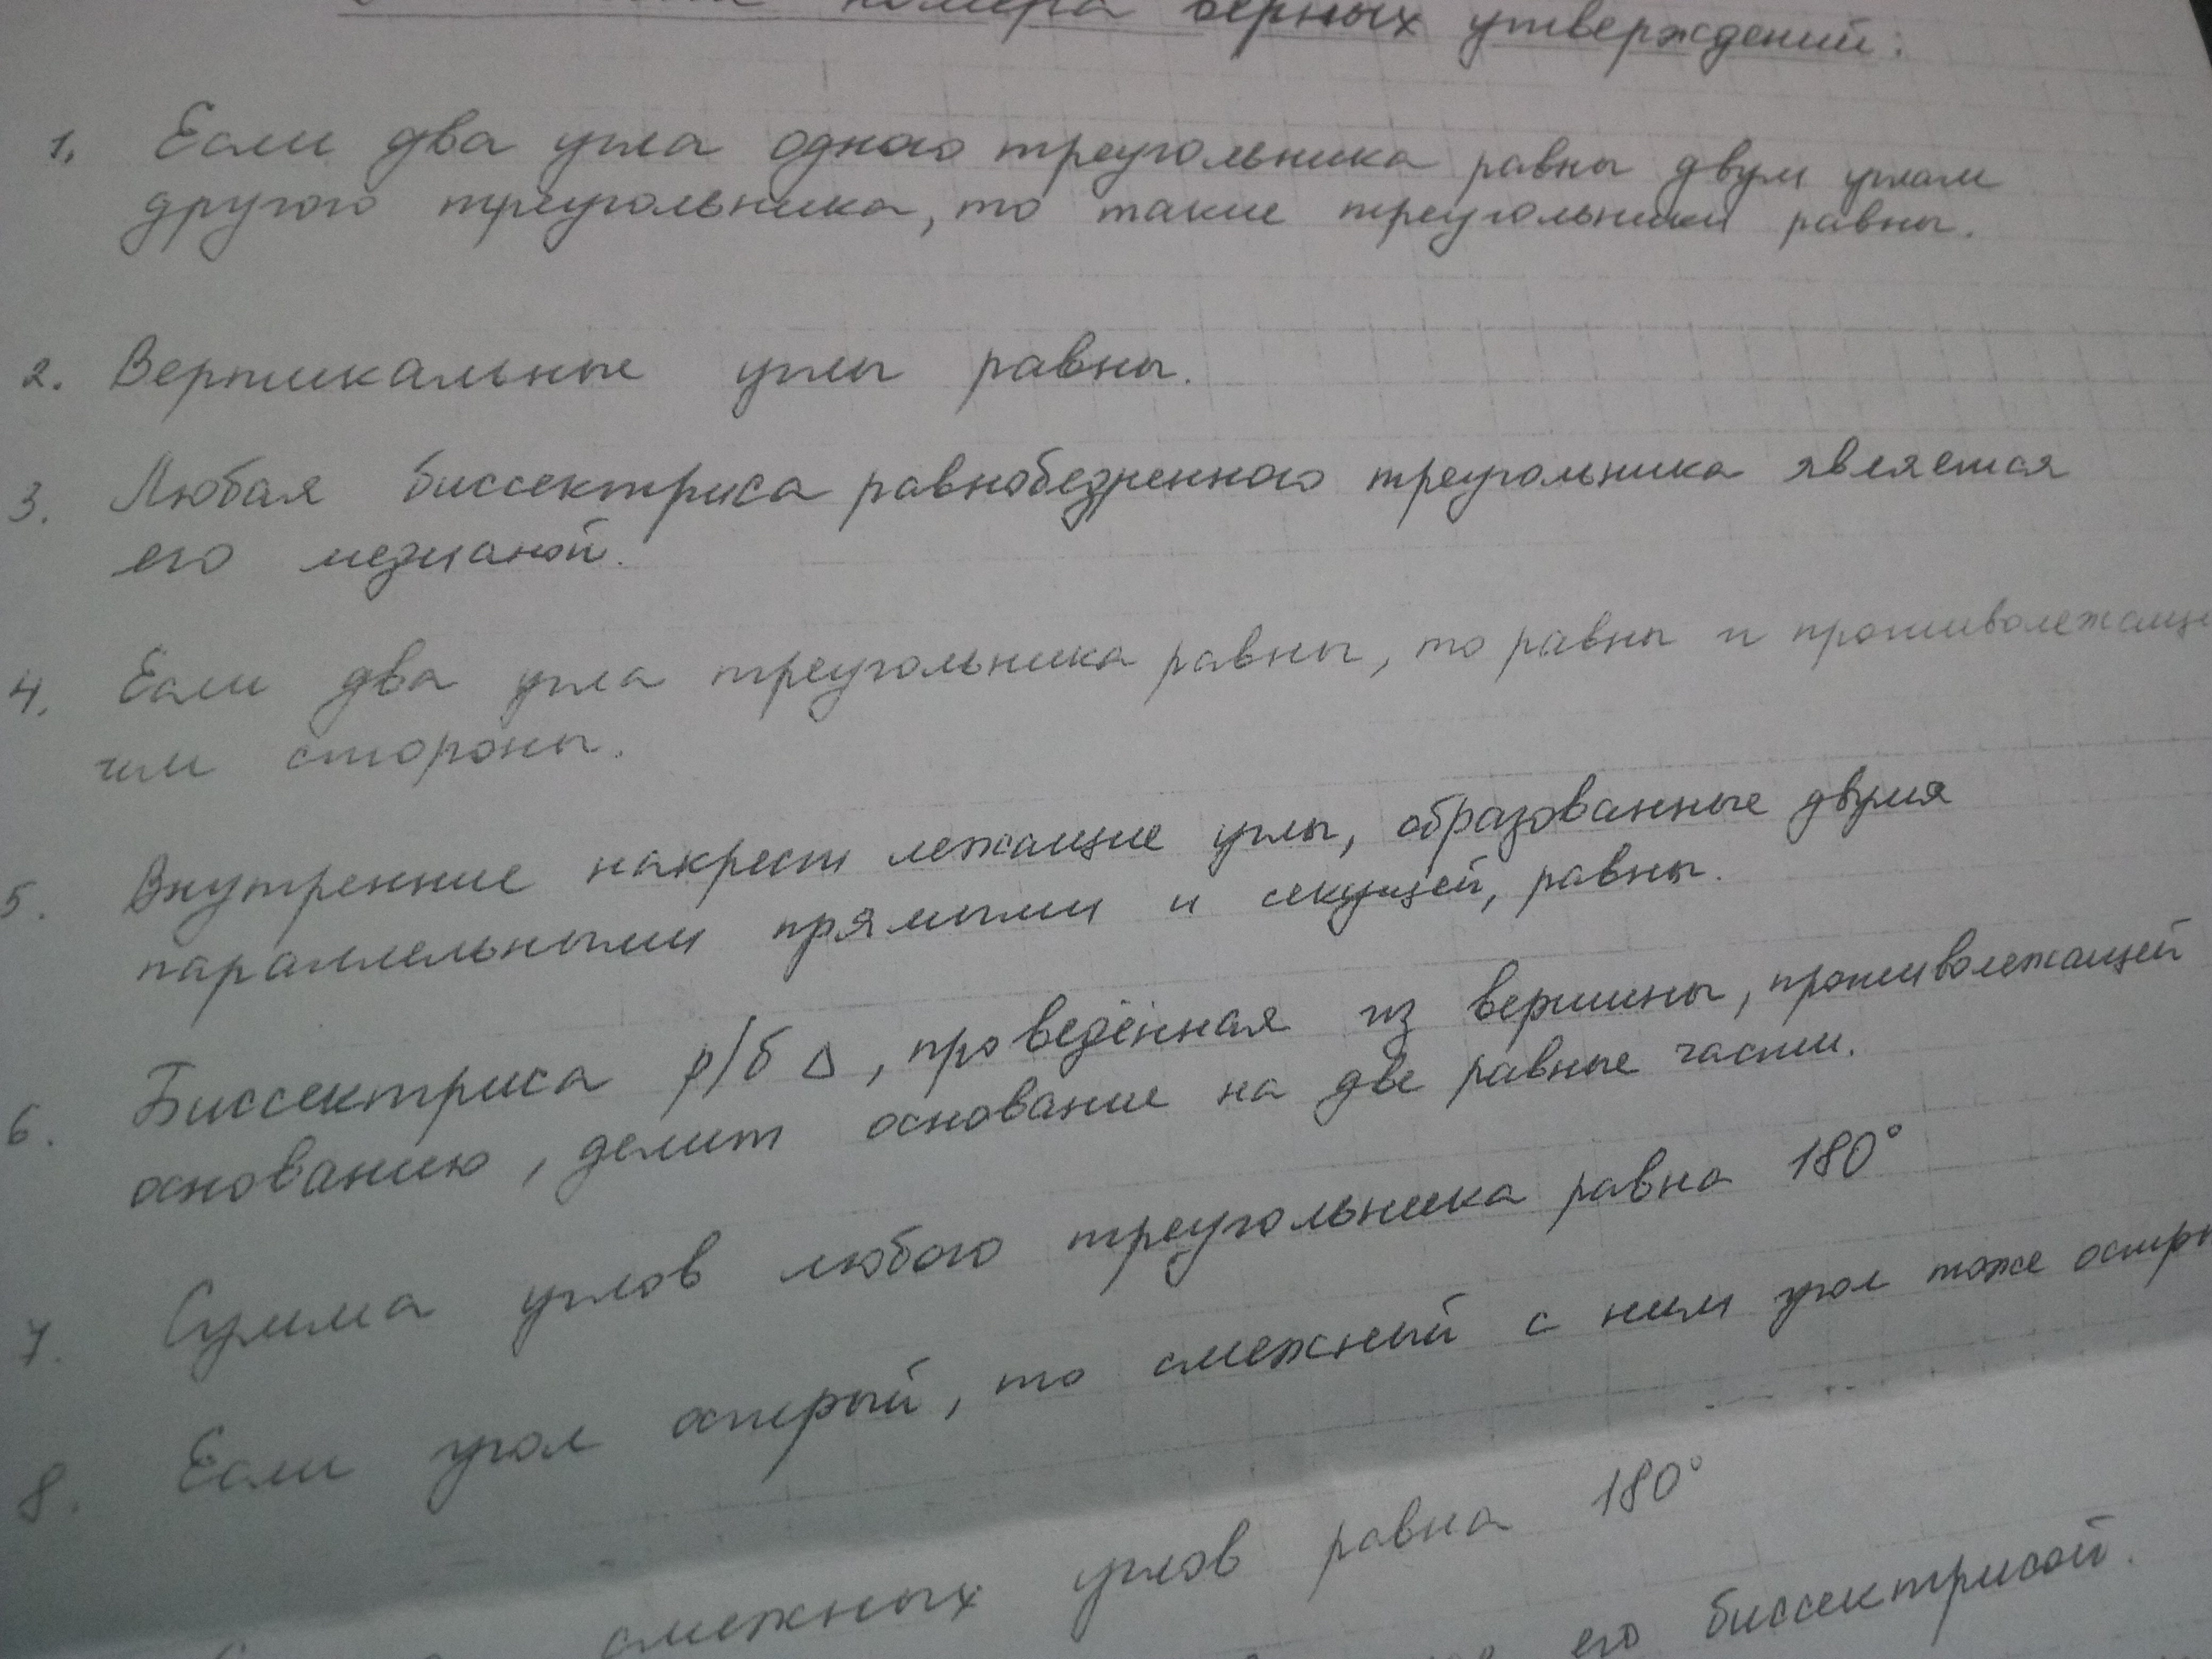 номера верных утверждений:
1. Если два угла одного треугольника равны двум углам
другого треугольника, то такие треугольники равны.
2. Вертикальные углы равны.
3. Любая биссектриса равнобедренного треугольника является
его медианой.
4. Если два угла треугольника равны, то равны и противолежащи
им стороны.
5. Внутренние накрест лежащие углы, образованные двумя
параллельными прямыми и секущей, равны.
6. Биссектриса р/б Δ, проведённая из вершины, противолежащей
основанию, делит основание на две равные части.
7. Сумма углов любого треугольника равна 180°
8. Если угол острый, то смежный с ним угол тоже остры
смежных углов равна 180°
его биссектрисой.